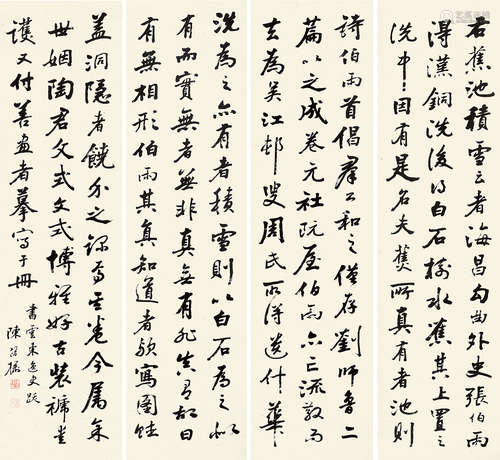 右蕉池積雪云者海昌勾曲外史張伯雨
得漢銅洗後得白石樹水蕉其上置之
洗中因有是名夫蕉所真有者池則
詩伯雨首倡羣公和之僅存劉師魯二
篇以之成卷元社既屋伯雨亦亡流散而
去為吳江邨叟周氏所得遺什華
洗為之亦有者積雪則以白石為之似
有而實無者無非真無有非真有故曰
有無相形伯雨其真知道者歟寫圖
蓋洞隱者饒介之錄焉其卷今屬余
世姻陶君文式文式博雅好古裝褫
護又付善畫者摹寫于冊
書雲東逸史跋
陳